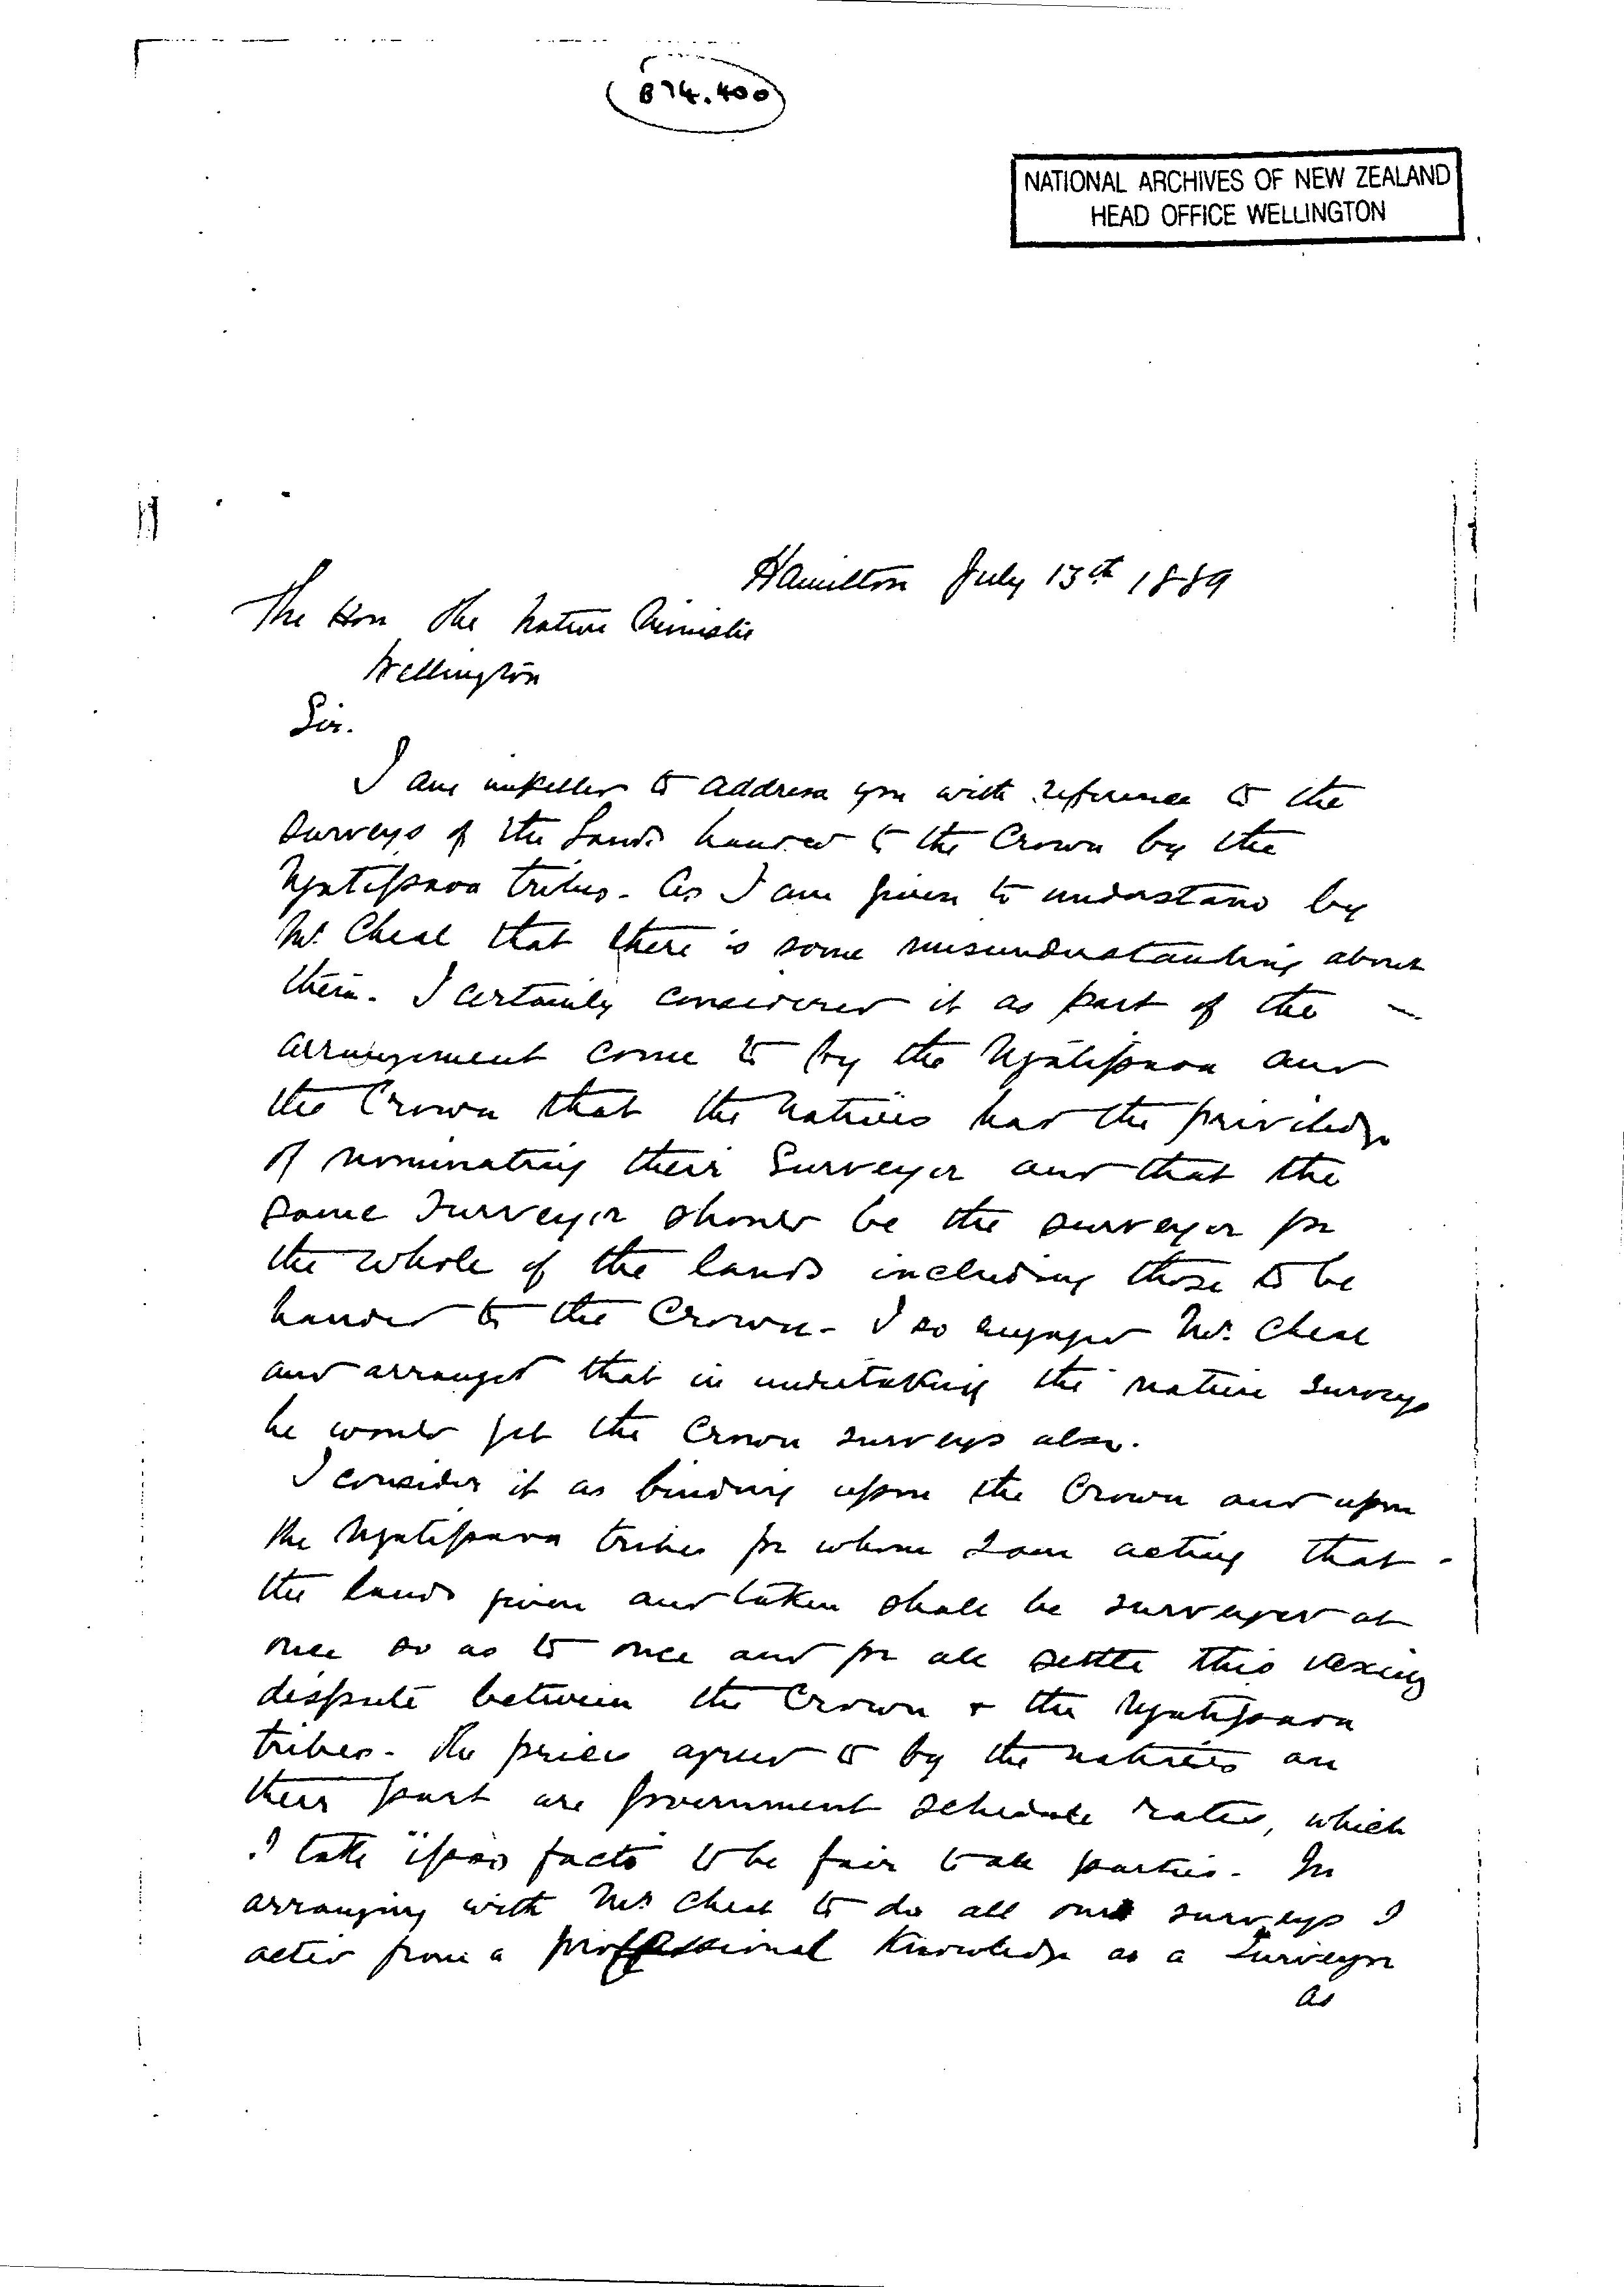 874.400
NATIONAL ARCHIVES OF NEW ZEALAND
HEAD OFFICE WELLINGTON
Hamilton July 13th 1889
The Hon The Native Minister
Wellington
Sir.
I am impelled to address you with reference to the
surveys of the Lands handed to the Crown by the
Ngatipaoa tribes. As I am given to understand by
Mr Cheal that there is some misunderstanding about
them. I certainly considered it as part of the
arrangement come to by the Ngatipaoa and
the Crown that the natives had the priviledge
of nominating their Surveyor and that the
same Surveyor should be the surveyor for
the whole of the lands including those to be
handed to the Crown. I so engaged Mr. Cheal
and arranged that in undertaking the native surveys
he would get the Crown surveys also.
I consider it as binding upon the Crown and upon
the Ngatipaoa tribes for whom I am acting that
the lands given and taken shall be surveyed at
once so as to once and for all settle this vexing
dispute between the Crown & the Ngatipaoa
tribes. The prices agreed to by the natives on
their part are government schedule rates, which
I take ipso facto to be fair to all parties. In
arranging with Mr Cheal to do all our surveys I
acted from a professional knowledge as a Surveyor
as